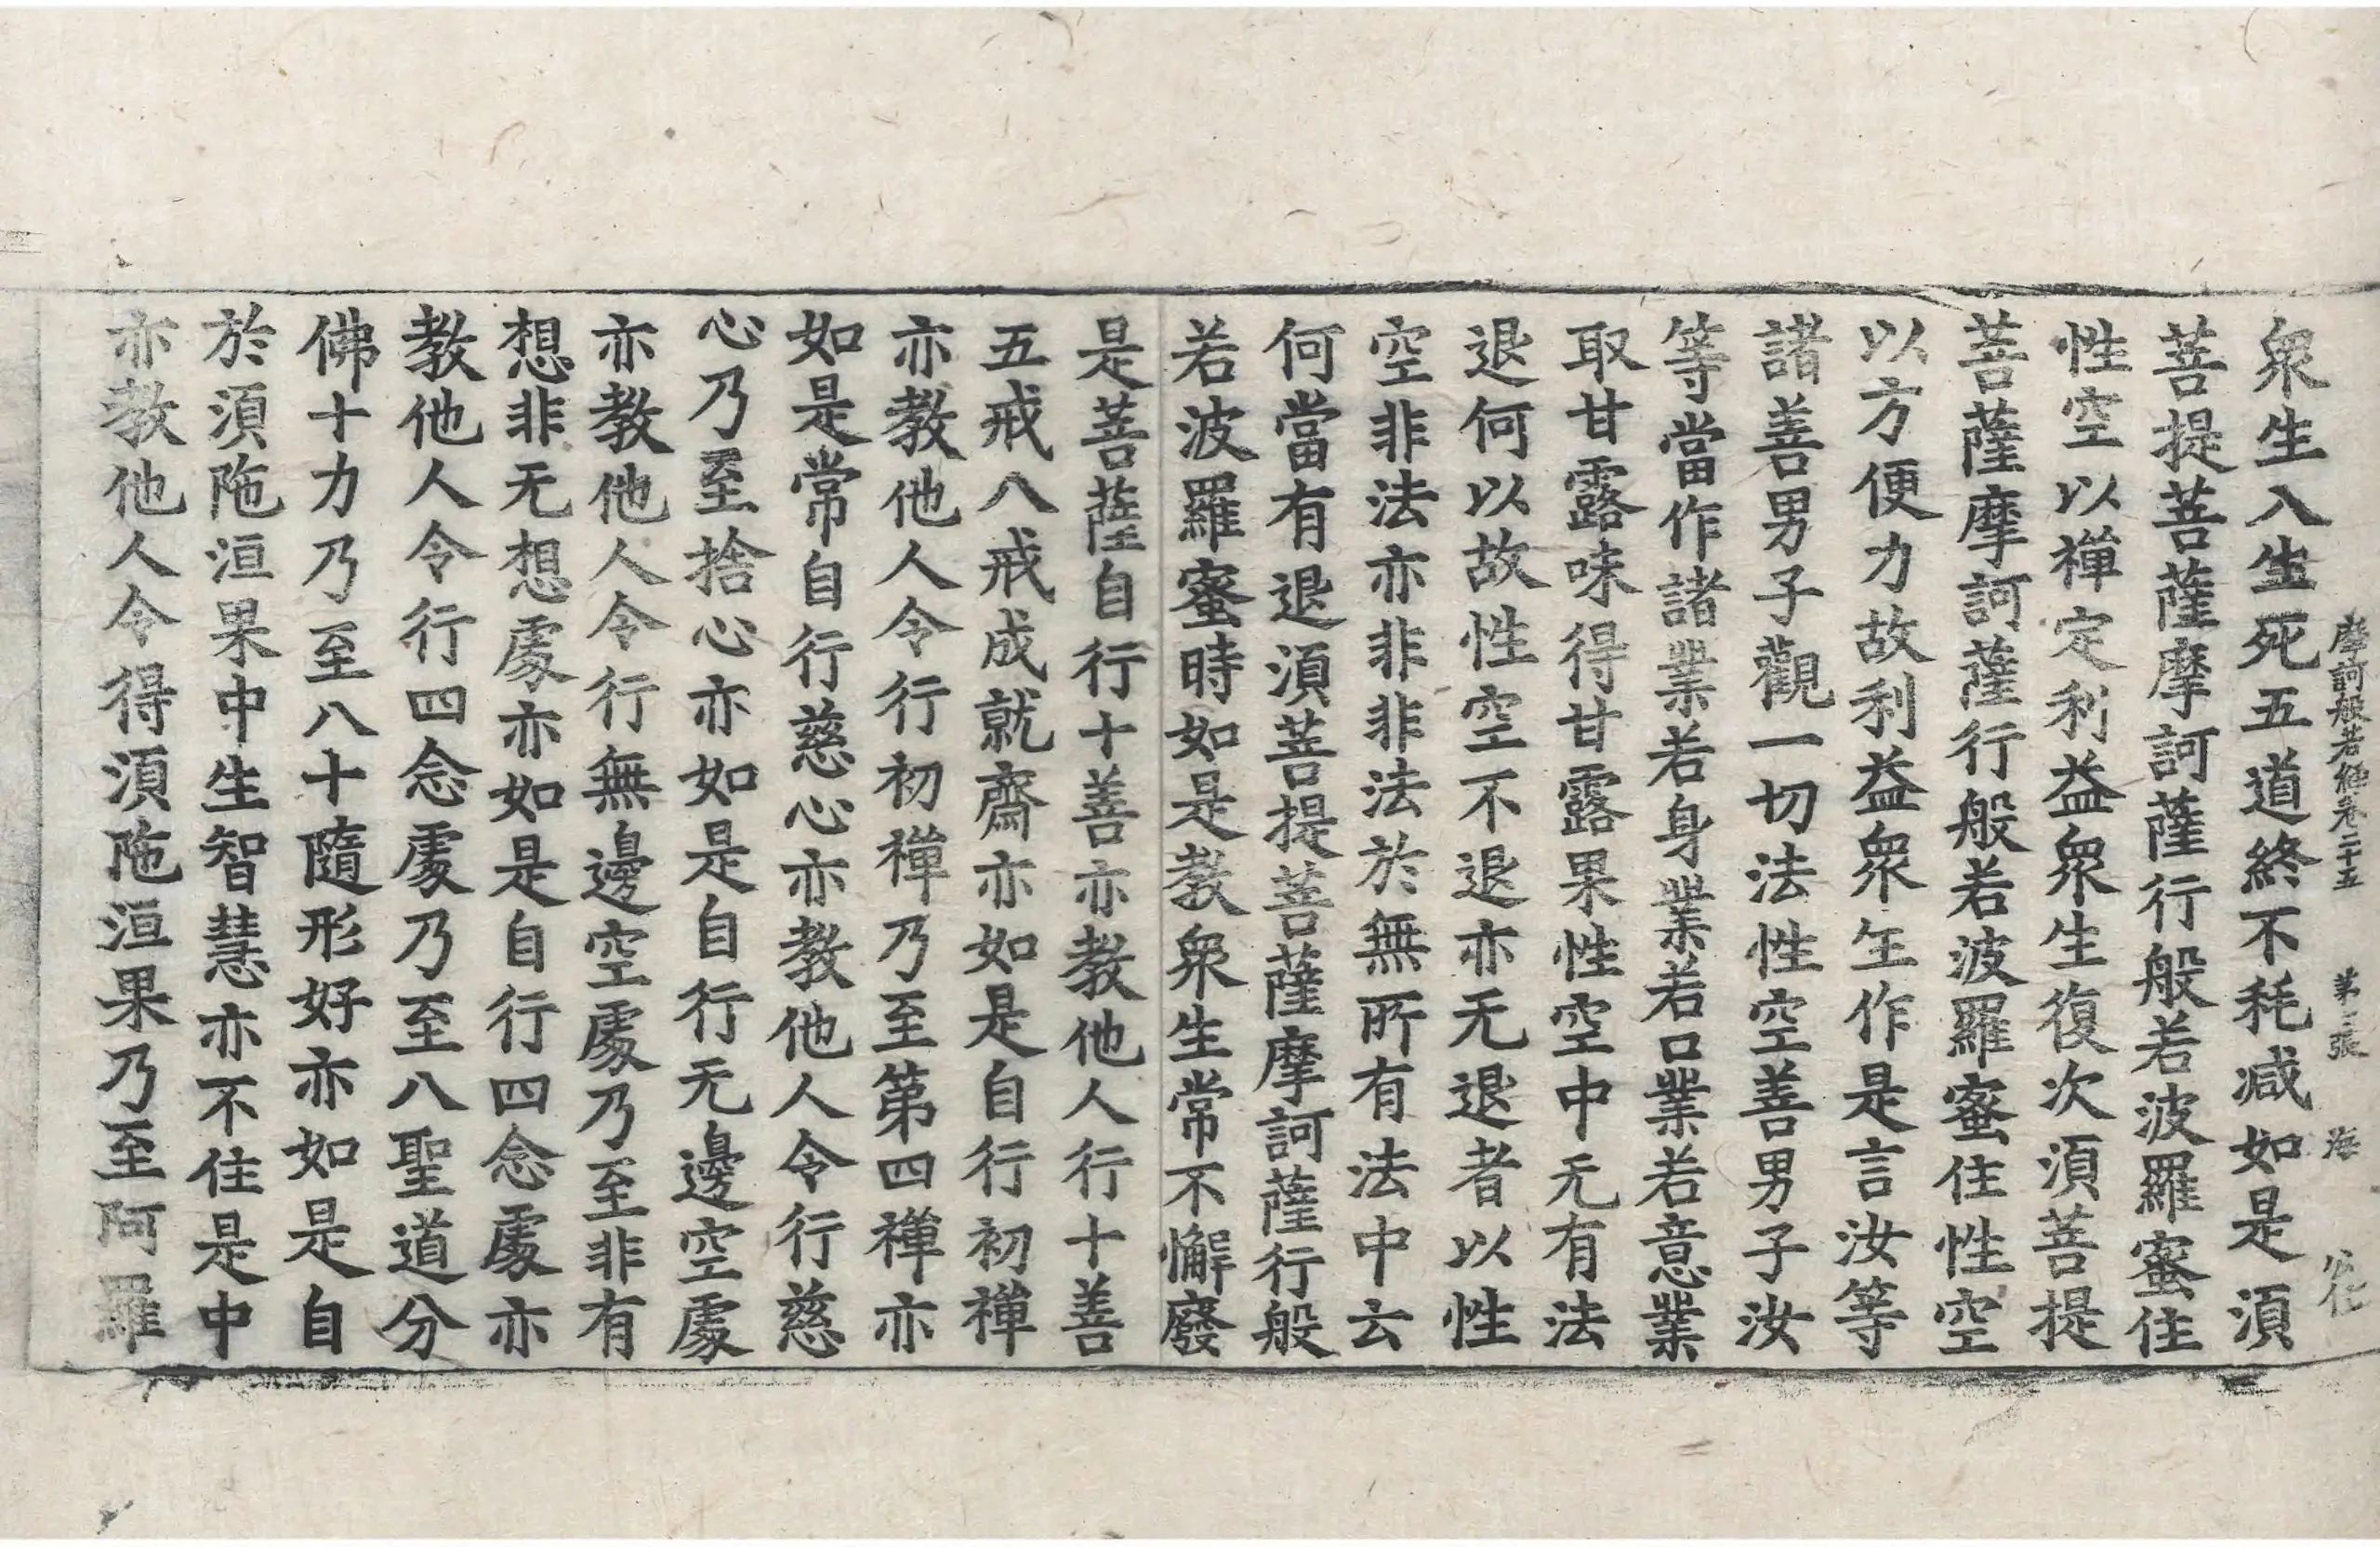 摩訶般若經卷二十五 第 張 海
眾生入生死五道終不耗減如是須
菩提菩薩摩訶薩行般若波羅蜜住
性空以禪定利益眾生復次須菩提
菩薩摩訶薩行般若波羅蜜住性空
以方便力故利益眾生作是言汝等
諸善男子觀一切法性空善男子汝
等當作諸業若身業若口業若意業
取甘露味得甘露果性空中无有法
退何以故性空不退亦无退者以性
空非法亦非非法於無所有法中云
何當有退須菩提菩薩摩訶薩行般
若波羅蜜時如是教眾生常不懈廢
是菩薩自行十善亦教他人行十善
五戒八戒成就齋亦如是自行初禪
亦教他人令行初禪乃至第四禪亦
如是常自行慈心亦教他人令行慈
心乃至捨心亦如是自行无邊空處
亦教他人令行無邊空處乃至非有
想非无想處亦如是自行四念處亦
教他人令行四念處乃至八聖道分
佛十力乃至八十隨形好亦如是自
於須陁洹果中生智慧亦不住是中
亦教他人令得須陁洹果乃至阿羅